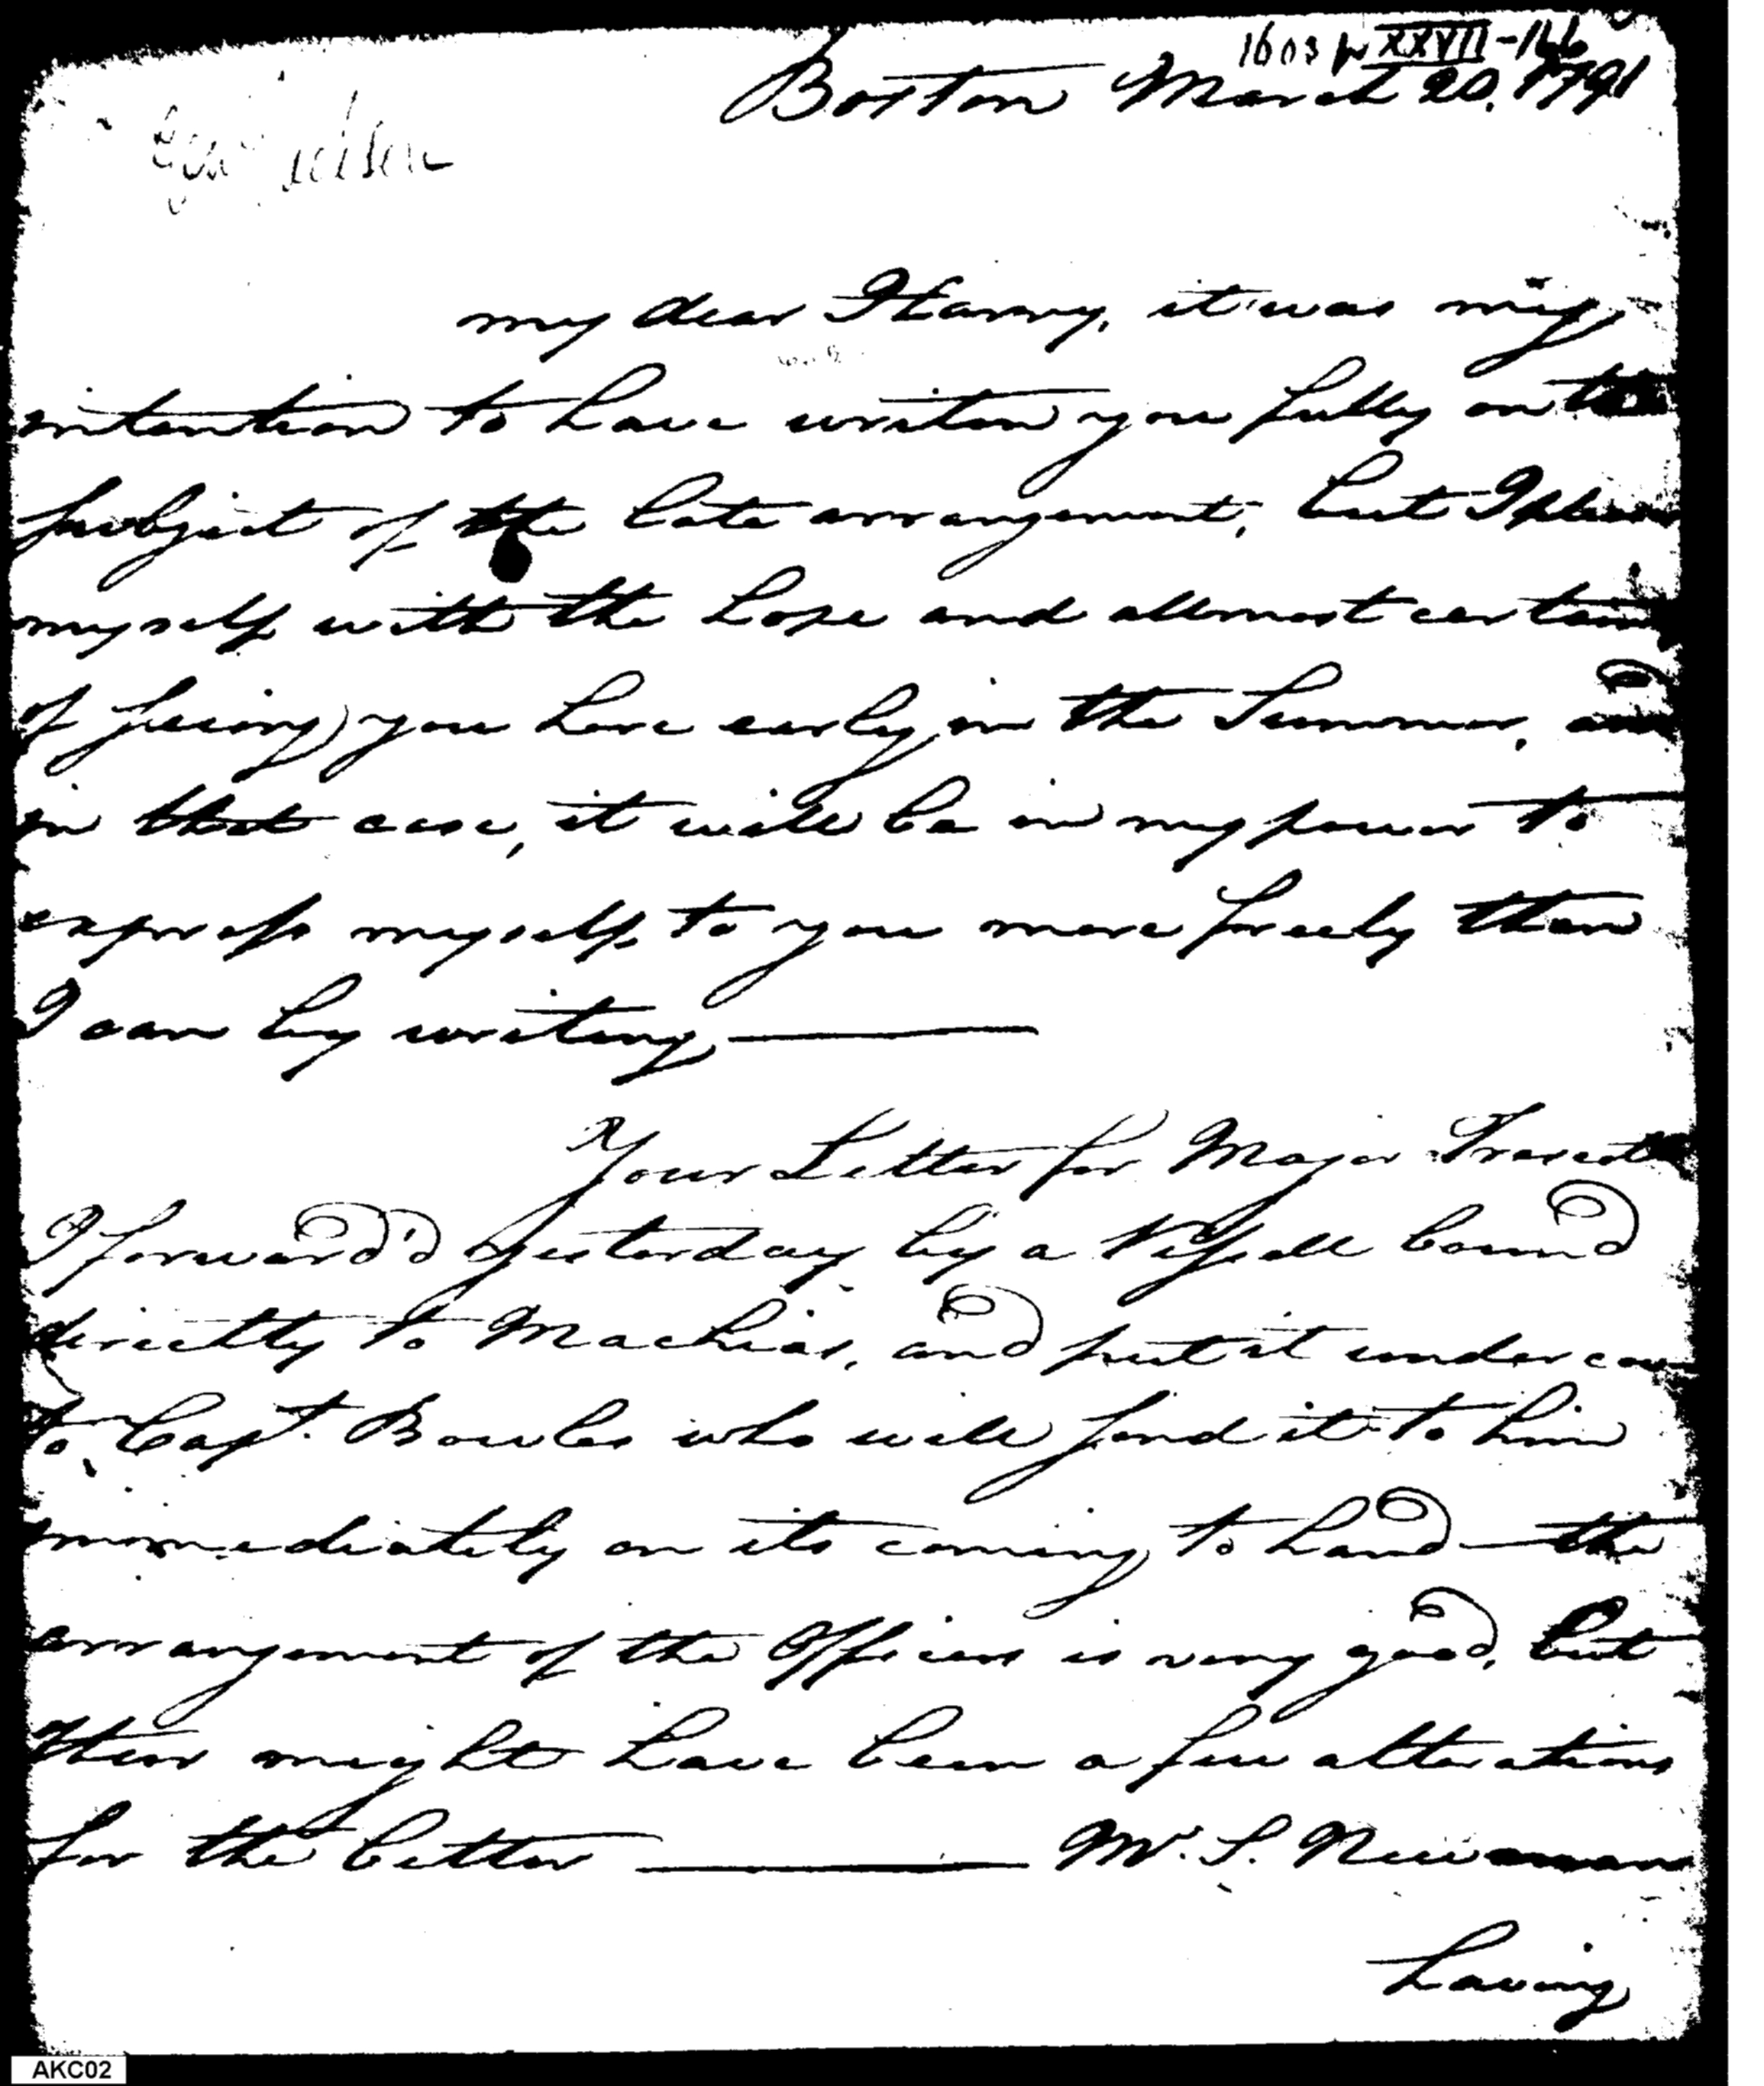 1603 XXVII-146
Boston March 20. 1791
Genl Jackson
my dear Harry, it was my
intention to have writen you fully on the
subject of the late arrangement, but I please
myself with the hope and allmost certainty
of seeing you here early in the Summer, and
in that case, it will be in my power to
express myself to you more freely than
I can by writing
Your Letter for Major Trescott
I forward'd yesterday by a Vessell bound
directly to Machias, and put it under cover
to Capt. Bowles who will send it to him
immediately on its coming to hand — the
arrangement of the Officers is very good, but
their might have been a few alterations
for the better ——— Mr. S. Newman
having
AKC02